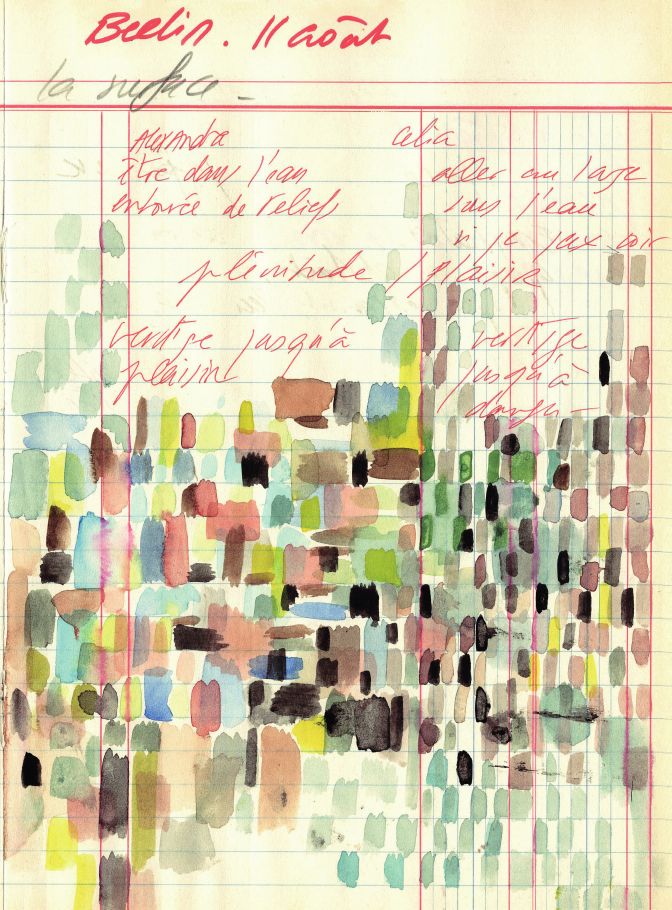 Berlin. 11 août
la surface -
Alexandra
être dans l'eau
entourée de reliefs
celia
aller au large
sous l'eau
si je peux voir
plénitude / plaisir
vertige jusqu'à
plaisir
vertige
jusqu'à
danger -